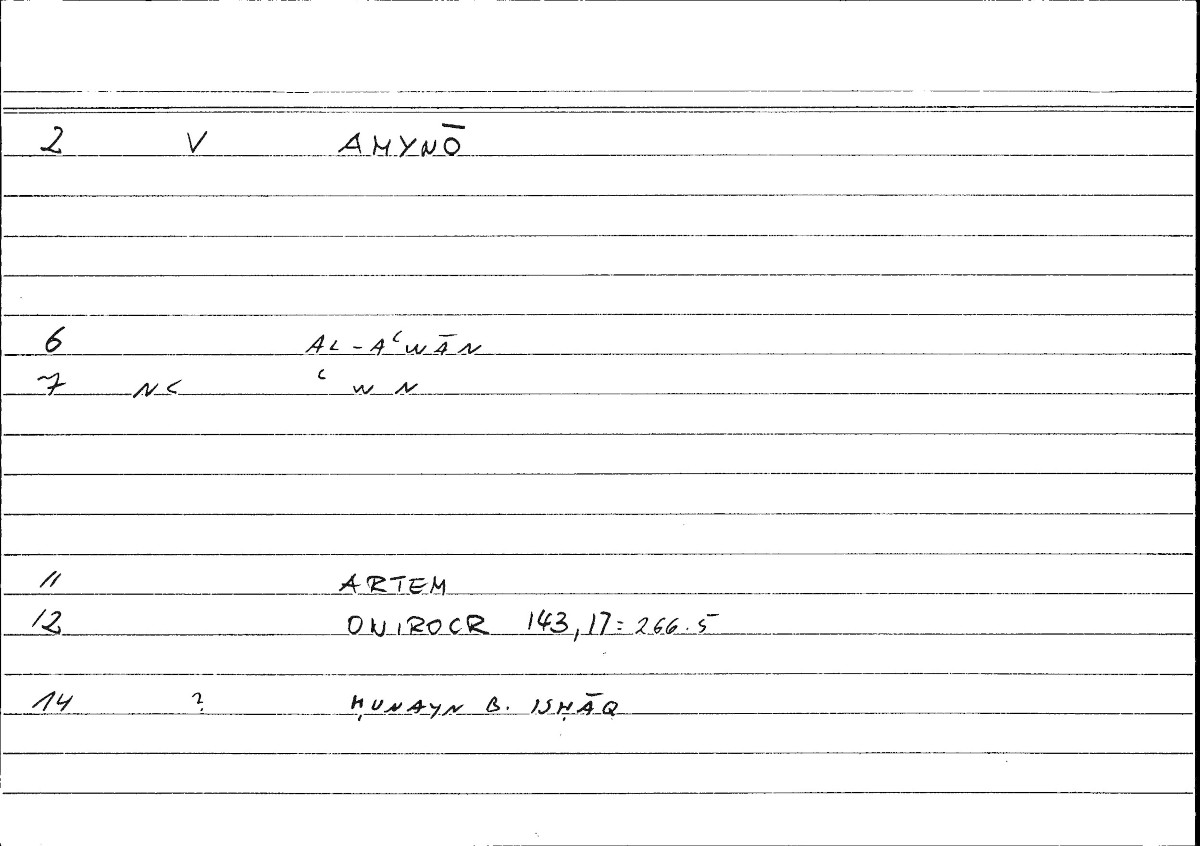 2 V AMYNŌ
6 AL-AʿWĀN
7 NC ʿ W N
11 ARTEM
12 ONIROCR 143,17=266.5
14 ? ḤUNAYN B. ISḤĀQ